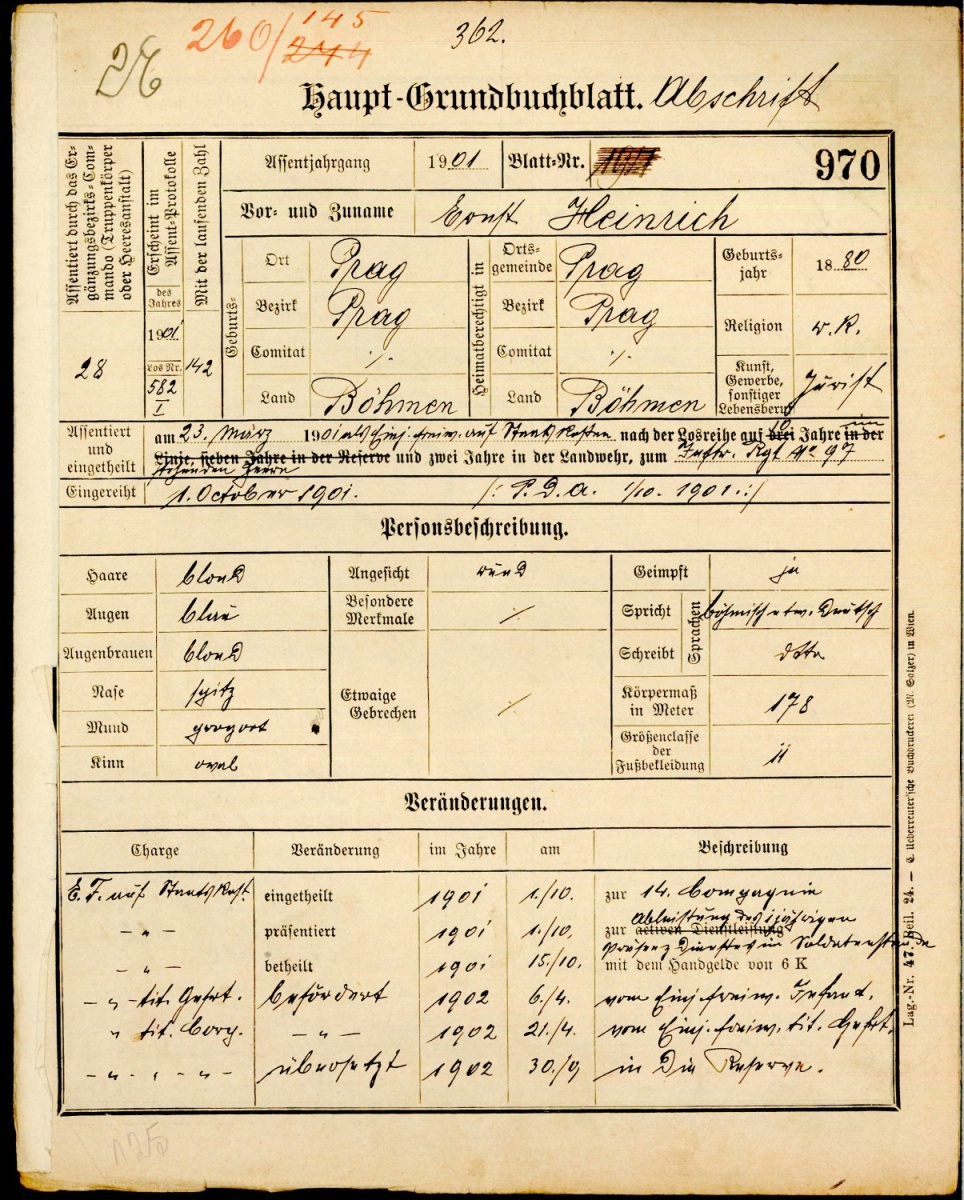 28
260/145
244
362.
Haupt-Grundbuchblatt. Abschrift
Assentiert durch das Ergänzungsbezirks-Commando (Truppenkörper oder Heeresanstalt)
28
Erscheint im Assent-Protokolle
des Jahres
1901
Los Nr.
582
I
Mit der laufenden Zahl
142
Assentjahrgang 1901 Blatt-Nr. 970
Vor- und Zuname Ernst Heinrich
Geburts-
Ort Prag
Bezirk Prag
Comitat ·/·
Land Böhmen
Heimatberechtigt in
Ortsgemeinde Prag
Bezirk Prag
Comitat ·/·
Land Böhmen
Geburtsjahr 1880
Religion r. k.
Kunst, Gewerbe, sonstiger Lebensberuf Jurist
Assentiert und eingetheilt
am 23. März 1901 als Einj. freiw. auf Staats Kosten nach der Losreihe auf drei 10 Jahre in der im
Linie, sieben Jahre in der Reserve und zwei Jahre in der Landwehr, zum Inftr. Rgt No 97
stehenden Heere
Eingereiht 1. October 1901. /: P. D. A. 1/10. 1901. :/
Personsbeschreibung.
Haare blond
Augen blau
Augenbrauen blond
Nase spitz
Mund proport
Kinn oval
Angesicht rund
Besondere Merkmale ·/·
Etwaige Gebrechen ·/·
Geimpft ja
Sprachen
Spricht böhmisch etw. Deutsch
Schreibt dtto
Körpermaß in Meter 178
Größenclasse der Fußbekleidung 11
Veränderungen.
Charge Veränderung im Jahre am Beschreibung
E. F. auf Staats Kost. eingetheilt 1901 1./10. zur 14. Compagnie
Ableistung des 1jährigen
– „ – präsentiert 1901 1./10. zur activen Dienstleistung
Präsenz Dienstes im Soldatenstande
– „ – betheilt 1901 15./10. mit dem Handgelde von 6 K
– „ – tit. Gefrt. befördert 1902 6./4. vom Einj. freiw. Infant.
„ tit. Corp. – „ – 1902 21./4. vom Einj. freiw. tit. Gefrt.
– „ – „ – „ – übersetzt 1902 30./9 in die Reserve.
Lag.-Nr. 47. Beil. 24. — C. Ueberreuter'sche Buchdruckerei (M. Salzer) in Wien.
125